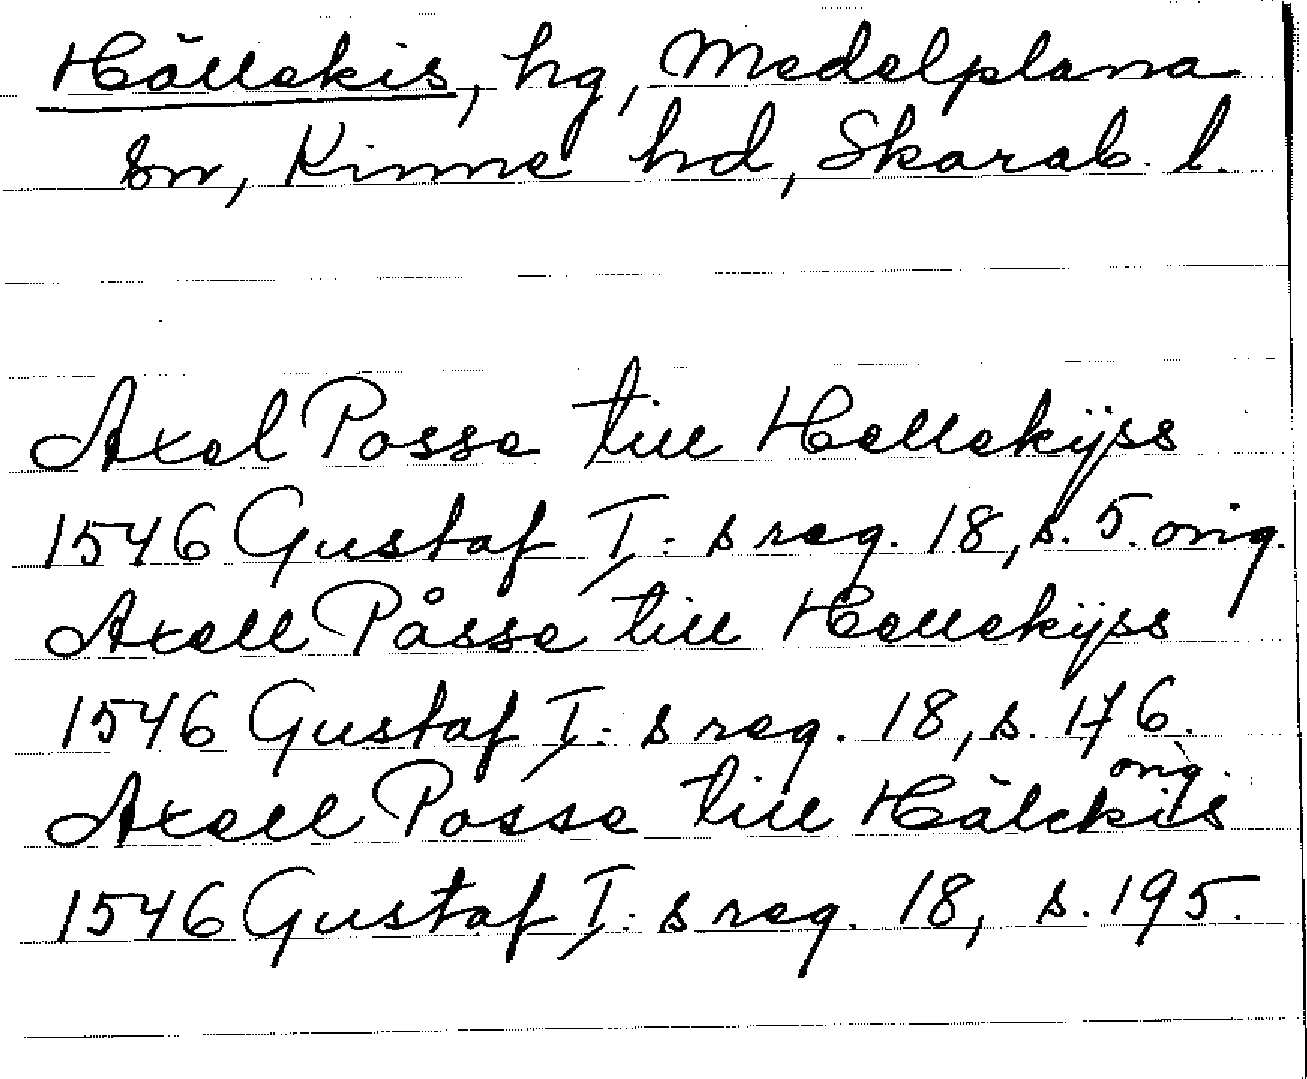 Hällekis, hg, Medelplana
sn, Kinne hd, Skarab. l.
Axel Posse till Hellekijss
1546 Gustaf I:s reg. 18, s. 5. orig.
Axell Påsse till Hellekijss
1546 Gustaf I:s reg. 18, s. 176.
orig.
Axell Posse till Hälekis
1546 Gustaf I:s reg. 18, s. 195.